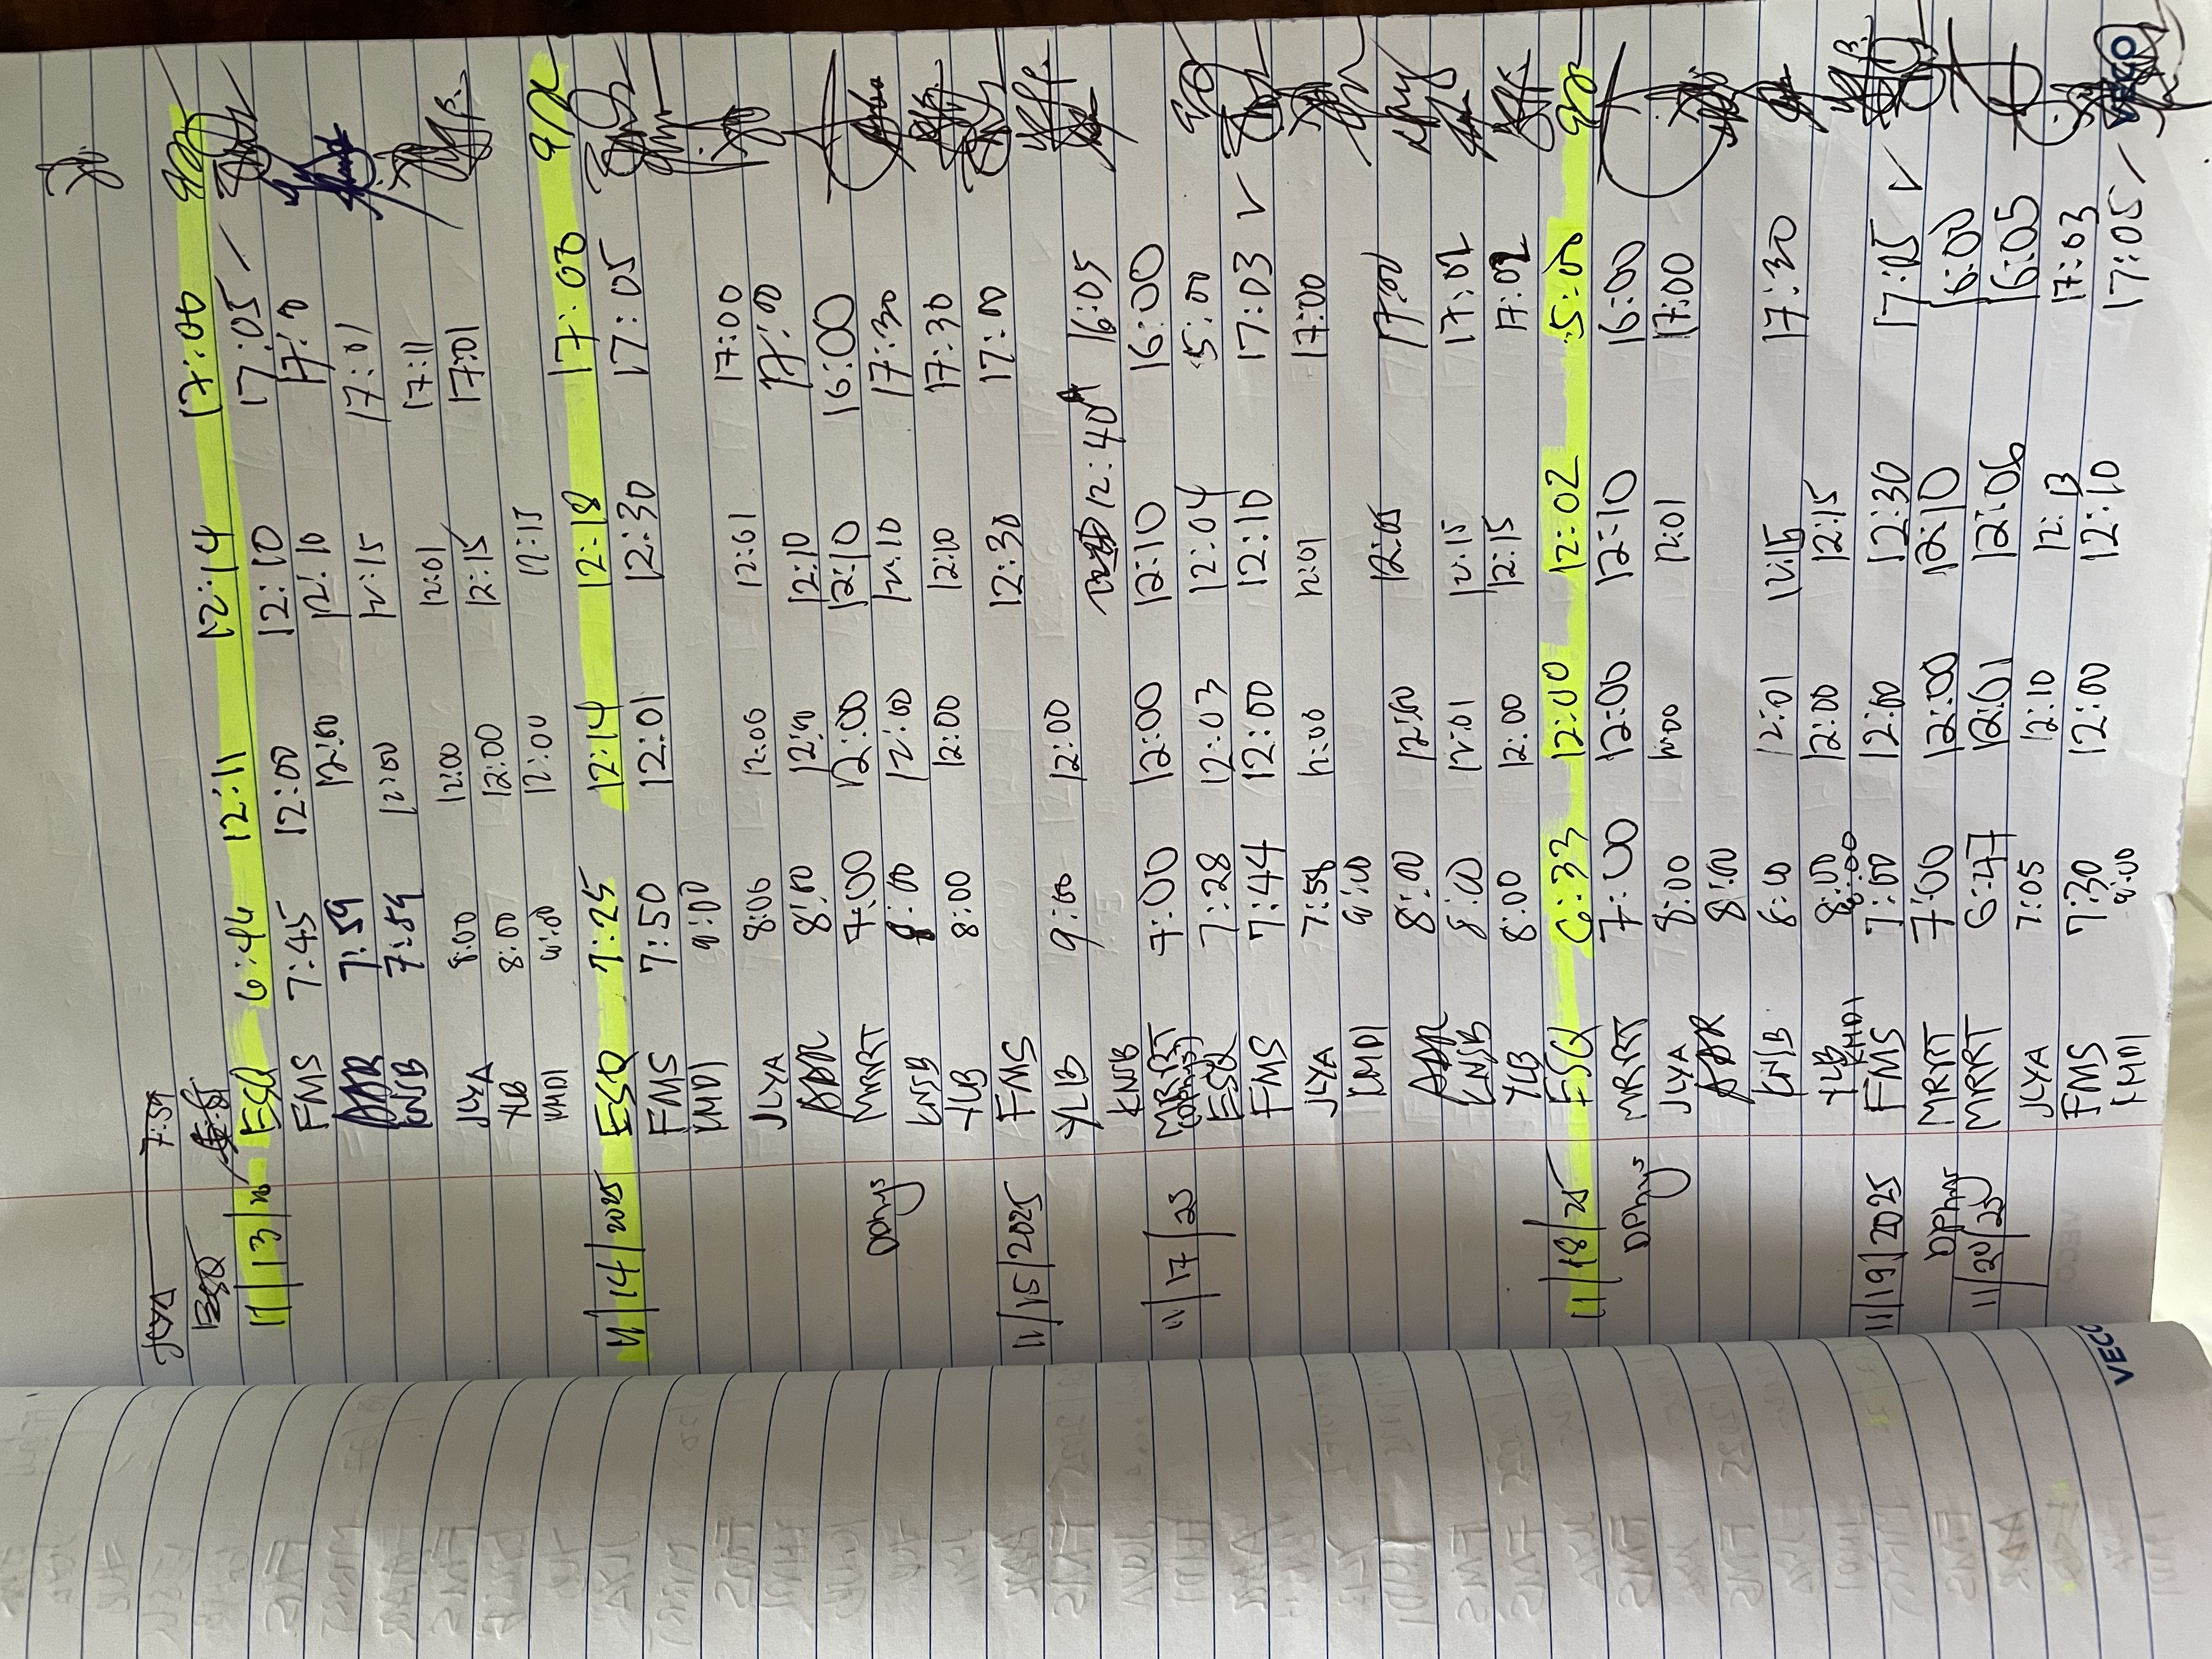 JLYA 7:59
ESQ
11/13/25 ESQ 6:46 12:11 12:14 17:00
FMS 7:45 12:00 12:10 17:05
ADR 7:59 12:00 12:10 17:11
KNJB 7:59 12:00 12:15 17:01
JLYA 8:00 12:00 12:01 17:11
YLB 8:00 12:00 12:15 17:01
KMD1 12:00 12:15
11/14/2025 ESQ 7:25 12:14 12:18 17:00
FMS 7:50 12:01 12:30 17:05
KMD1 9:00
JLYA 8:00 12:00 12:01 17:00
ADR 8:00 12:00 12:10 17:00
DPhys MRRT 7:00 12:00 12:10 16:00
KNJB 8:00 12:00 12:10 17:30
YLB 8:00 12:00 12:10 17:30
11/15/2025 FMS 12:30 17:00
YLB 9:00 12:00 12:40 16:05
KNJB
11/17/25 MRRT (DPhys) 7:00 12:00 12:10 16:00
ESQ 7:28 12:03 12:04 5:00
FMS 7:44 12:00 12:10 17:03
JLYA 7:58 12:00 12:01 17:00
KMD1 9:00
ADR 8:00 12:00 12:05 17:00
KNJB 8:00 12:01 12:15 17:02
YLB 8:00 12:00 12:15 17:02
11/18/25 ESQ 6:33 12:00 12:02 5:00
DPhys MRRT 7:00 12:00 12:10 16:00
JLYA 8:00 12:00 12:01 17:00
ADR 8:00
KNJB 8:00 12:01 12:15 17:30
YLB 8:00 12:00 12:15
KMD1 8:00
11/19/2025 FMS 7:00 12:00 12:30 17:05
DPhys MRRT 7:00 12:00 12:10 16:00
11/20/25 MRRT 6:47 12:01 12:06 16:05
JLYA 7:05 12:10 12:13 17:03
FMS 7:30 12:00 12:10 17:05
KMD1 9:00
VECO
VECO